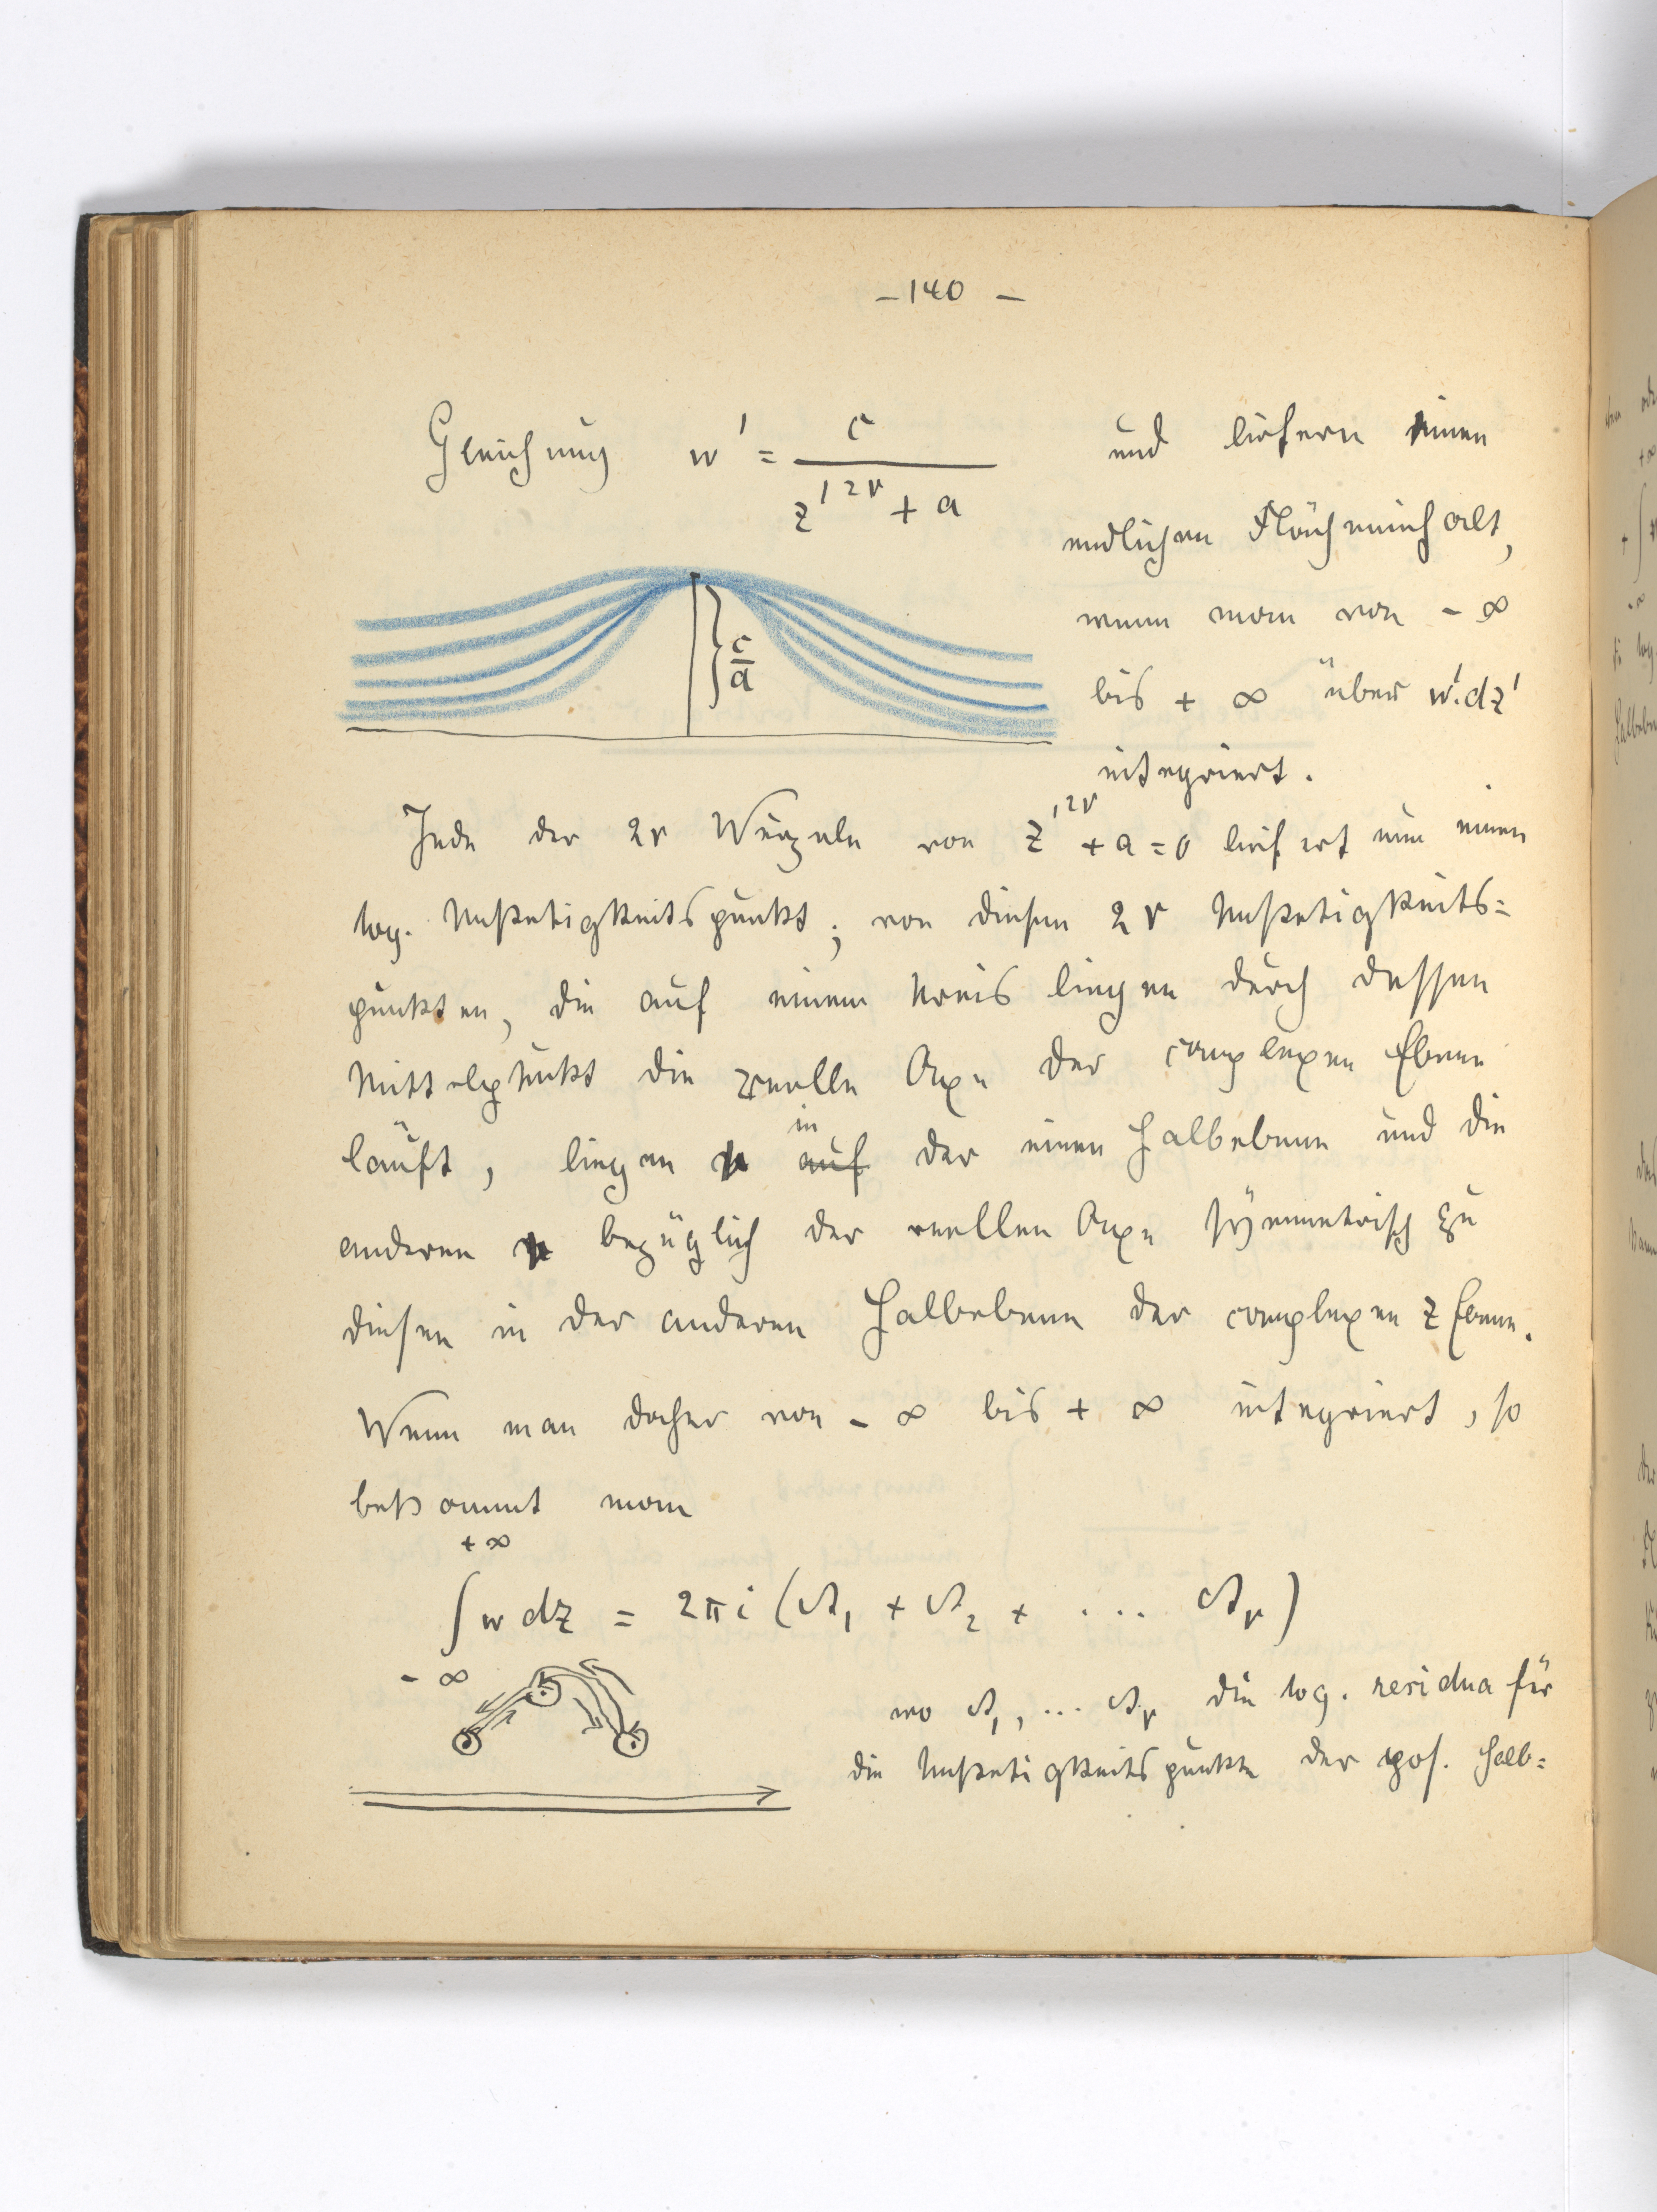 – 140 –
Gleichung w' = c / (z'^{2r} + a) und liefern einen
endlichen Flächeninhalt,
wenn man von - ∞
c/a
bis + ∞ über w'.dz'
integriert.
Jede der 2r Wurzeln von z'^{2r} + a = 0 liefert nun einen
log. Unstetigkeitspunkt; von diesen 2r Unstetigkeits=
punkten, die auf einem Kreis liegen durch dessen
Mittelpunkt die reelle Axe der complexen Ebene
läuft, liegen r in der einen Halbebene und die
anderen r bezüglich der reellen Axe symmetrisch zu
diesen in der anderen Halbebene der complexen z Ebene.
Wenn man daher von - ∞ bis + ∞ integriert, so
bekommt man
∫_{-∞}^{+∞} w dz = 2πi (A₁ + A₂ + .... A_r)
wo A₁, ... A_r die log. residua für
die Unstetigkeitspunkte der pos. Halb=